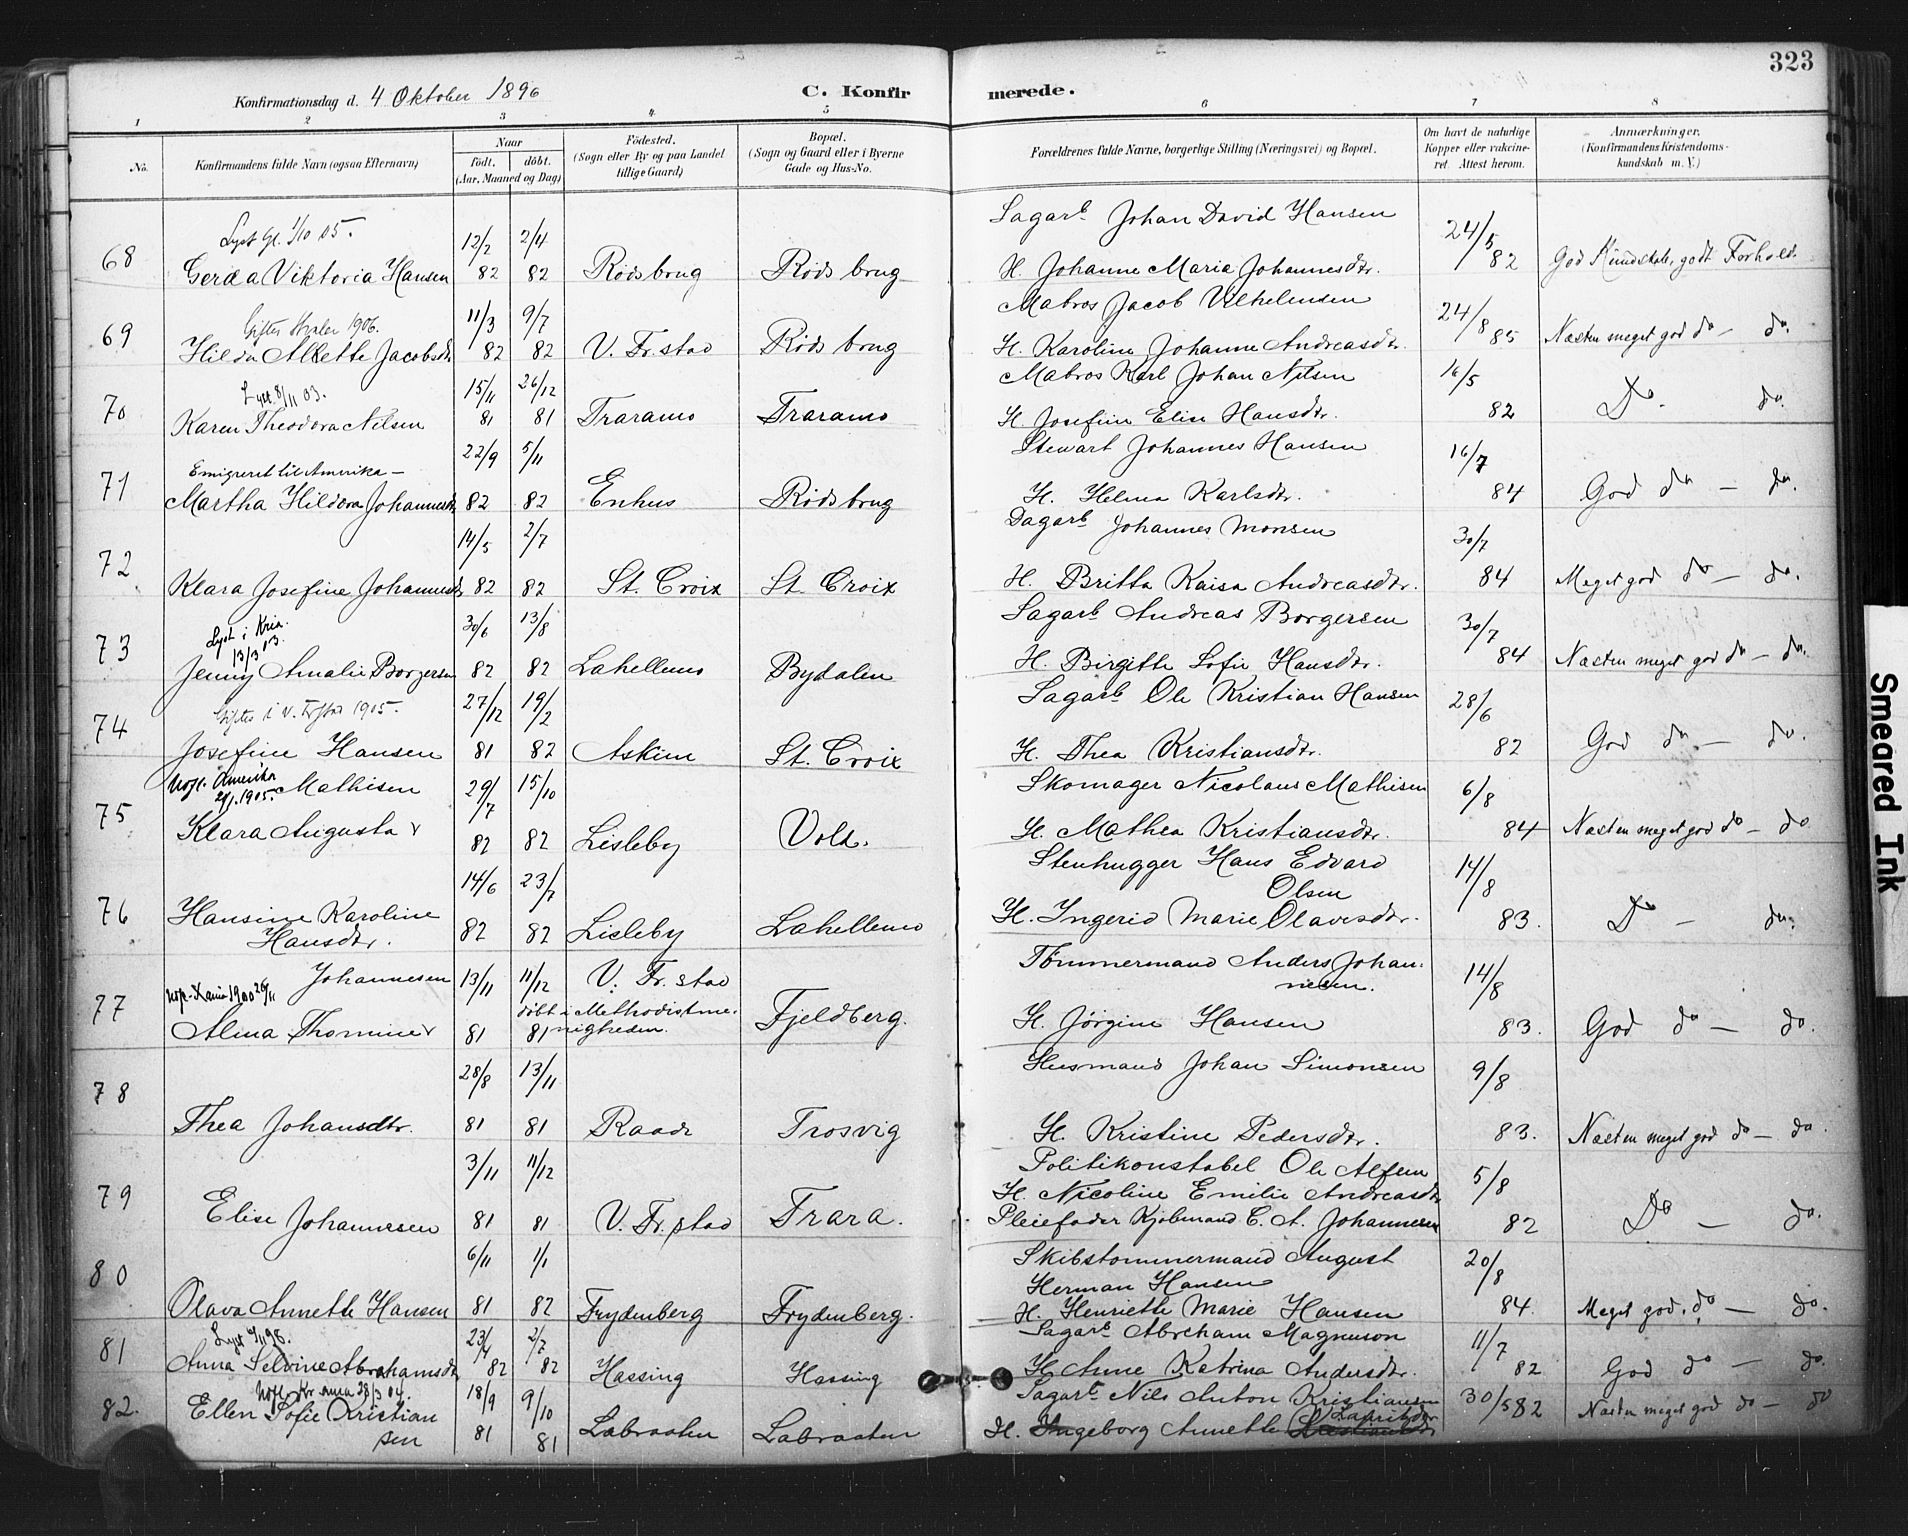 323
Konfirmationsdag d. 4 Oktober 1896
C. Konfir merede.
1 2 3 4 5 6 7 8
No.
Konfirmandens fulde Navn (ogsaa Efternavn)
Naar
født. døbt.
(Aar, Maaned og Dag)
Fødested.
(Sogn eller By og paa Landet tillige Gaard)
Bopæl.
(Sogn og Gaard eller i Byerne Gade og Hus-No.
Forældrenes fulde Navne, borgerlige Stilling (Næringsvei) og Bopæl.
Om havt de naturlige Kopper eller vakcineret. Attest herom.
Anmærkninger.
(Konfirmandens Kristendomskundskab m. V.)
68 Gerda Viktoria Hansen 12/2 82 2/4 82 Røds brug Røds brug
Sagarb. Johan David Hansen
H. Johanne Maria Johannesdtr. 24/5 82 God Kundskab, godt Forhold.
69 Giftes Hvaler 1906.
Hilda Alette Jacobsdtr 11/3 82 9/7 82 V. Fr.stad Røds brug
Matros Jacob Vilhelmsen
H. Karoline Johanne Andreasdtr. 24/8 85 Næsten meget god do - do.
70 Lyst 8/11 03.
Karen Theodora Nilsen 15/11 81 26/12 81 Traramo Traramo
Matros Karl Johan Nilsen
H. Josefine Elise Hansdtr. 16/5 82 Do. do.
71 Emigreret til Amerika -
Martha Hildora Johannesdtr 22/9 82 5/11 82 Enhus Røds brug
Stewart Johannes Hansen
H. Helma Karlsdtr. 16/7 84 God do - do.
72 Klara Josefine Johannesdtr 14/5 82 2/7 82 St. Croix St. Croix
Dagarb Johannes Monsen
H. Britta Kaisa Andreasdtr. 30/7 84 Meget god do - do.
73 Lyst i Kria. 13/3 03.
Jenny Amalie Borgersen 30/6 82 13/8 82 Lahellemo Bydalen
Sagarb Andreas Borgersen
H. Birgitte Sofie Hansdtr. 30/7 84 Næsten meget god do - do.
74 Giftes i V. Fr.stad 1905.
Josefine Hansen 27/12 81 19/2 82 Askim St. Croix
Sagarb Ole Kristian Hansen
H. Thea Kristiansdtr. 28/6 82 God do - do.
75 Amerika 1905. Mathisen
Klara Augusta 29/7 82 15/10 82 Lisleby Vold.
Skomager Nicolaus Mathisen
H. Mathea Kristiansdtr. 6/8 84 Næsten meget god do - do
76 Hansine Karoline
Hansdtr. 14/6 82 23/7 82 Lisleby Lahellemo
Stenhugger Hans Edvard
Olsen
H. Ingerid Marie Olavesdtr. 14/8 83. Do - do.
77 Johannesen
Alma Thomine 13/11 81 11/12 81 V. Fr.stad
døbt i Methodistmenigheden. Fjeldberg.
Tømmermand Anders Johannesen.
H. Jørgine Hansen 14/8 83. God do - do.
78 Thea Johansdtr. 28/8 81 13/11 81 Raade Trosvig
Husmand Johan Simonsen
H. Kristine Pedersdtr. 9/8 83. Næsten meget god do - do.
79 Elise Johannesen 3/11 81 11/12 81 V. Fr.stad Trara.
Politikonstabel Ole Alfsen
H. Nicoline Emilie Andreasdtr
Pleiefader Kjøbmand C. A. Johannesen 5/8 82 Do - do.
80 Olava Annette Hansen 6/11 81 1/1 82 Frydenberg Frydenberg.
Skibstømmermand August
Herman Hansen
H. Henriette Marie Hansen 20/8 84. Meget god. do - do.
81 Anna Selvine Abrahamsdtr 23/4 82 2/7 82 Hassing Hassing
Sagarb Abraham Magnuson
H. Anne Katrina Andersdtr. 11/7 82 God do - do.
82. Ellen Sofie Kristiansen 18/9 81 9/10 81 Labraaten Labraaten
Sagarb Nils Anton Kristiansen
H. Ingeborg Annette 30/5 82 Næsten meget god do - do
Smeared Ink